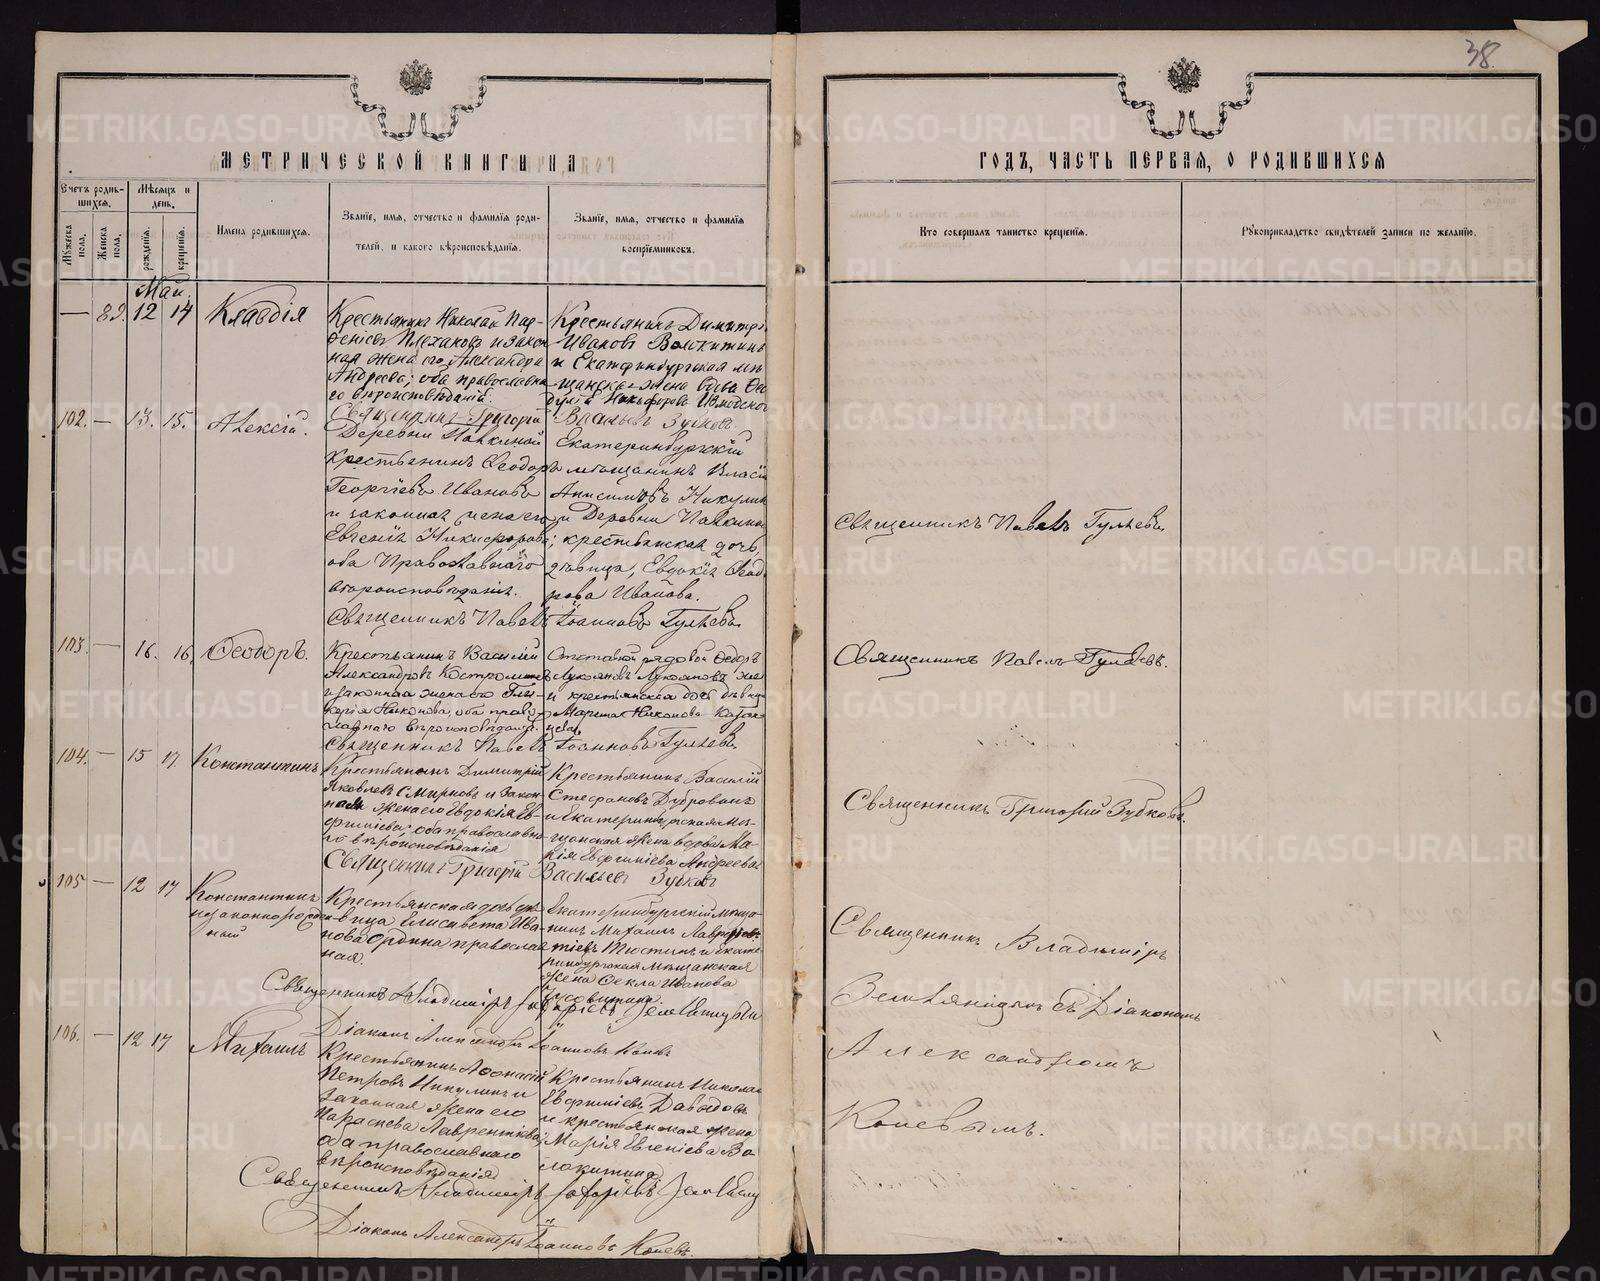 38.
МЕТРИЧЕСКОЙ КНИГИ НА
ГОДЪ, ЧАСТЬ ПЕРВАЯ, О РОДИВШИХСЯ
Счетъ родив-
шихся.
Мужеска пола.
Женска пола.
Мѣсяцъ и
день.
рожденія.
крещенія.
Имена родившихся.
Званіе, имя, отчество и фамилія роди-
телей, и какого вѣроисповѣданія.
Званіе, имя, отчество и фамилія
воспріемниковъ.
Кто совершалъ таинство крещенія.
Рукоприкладство свидѣтелей записи по желанію.
Май.
— 89. 12 14
Клавдія
Крестьянинъ Николай Пар-
феніевъ Плехановъ и закон
ная жена его Александра
Андреева; оба православна
го вѣроисповѣданія.
Крестьянинъ Димитрі
Ивановъ Волокитинъ
и Екатеринбургская мѣ
щанская жена вдова
Никифорова
Священникъ Григорій Васильевъ Зубковъ.
102. — 13. 15.
Алексій.
Деревни Павкиной
крестьянинъ Ѳеодоръ
Георгіевъ Ивановъ
и законная жена его
Евгенія Никифорова;
оба Православнаго
вѣроисповѣданія.
Екатеринбургскій
мѣщанинъ Власій
Анисимовъ Никулин
и Деревни Павкино
крестьянская дочь,
дѣвица, Евдокія Ѳеод
рова Иванова.
Священникъ Павелъ Іоанновъ Гуляевъ.
Священникъ Павелъ Гуляевъ.
103. — 16. 16.
Ѳеодоръ.
Крестьянинъ Василій
Александровъ Костроминъ
и законная жена его Гли-
керія Никонова, оба право-
славнаго вѣроисповѣданія.
Отставной рядовой Ѳедоръ
Лукояновъ Лукояновъ же
и крестьянская дочь дѣвица
Марина Никонова
Священникъ Павелъ Іоанновъ Гуляевъ
Священникъ Павелъ Гуляевъ.
104. — 15 17.
Константинъ
Крестьянинъ Димитрій
Яковлевъ Смирновъ и закон-
ная жена его Евдокія Ев-
фиміева; оба православна-
го вѣроисповѣданія
Крестьянинъ Василій
Стефановъ Дубровинъ
и Екатеринбургская мѣ-
щанская жена вдова Ма-
рія Евфиміева Андреева
Священникъ Григорій Васильевъ Зубковъ
Священникъ Григорій Зубковъ.
105 — 12 17
Константинъ
незаконнорожден-
ный
Крестьянская дочь дѣ-
вица Елисавета Ива-
нова Ордина православ
ная.
Екатеринбургскій мѣща-
нинъ Михаилъ Лаврен-
тіевъ Тюстинъ и Екате
ринбургская мѣщанская
жена Ѳекла Иванова
Священникъ Владиміръ
Діаконъ Александръ Іоанновъ Коневъ
Священникъ Владиміръ
Земляницынъ съ Діакономъ
Александромъ
Коневымъ.
106. — 12 17
Михаилъ
Крестьянинъ Аѳанасій
Петровъ Никулинъ и
законная жена его
Параскева Лаврентіева;
оба православнаго
вѣроисповѣданія
Крестьянинъ Николай
Евфиміевъ Давыдовъ
и крестьянская жена
Марія Евгеніева Во-
локитина
Священникъ Владиміръ
Діаконъ Александръ Іоанновъ Коневъ.
METRIKI.GASO-URAL.RU